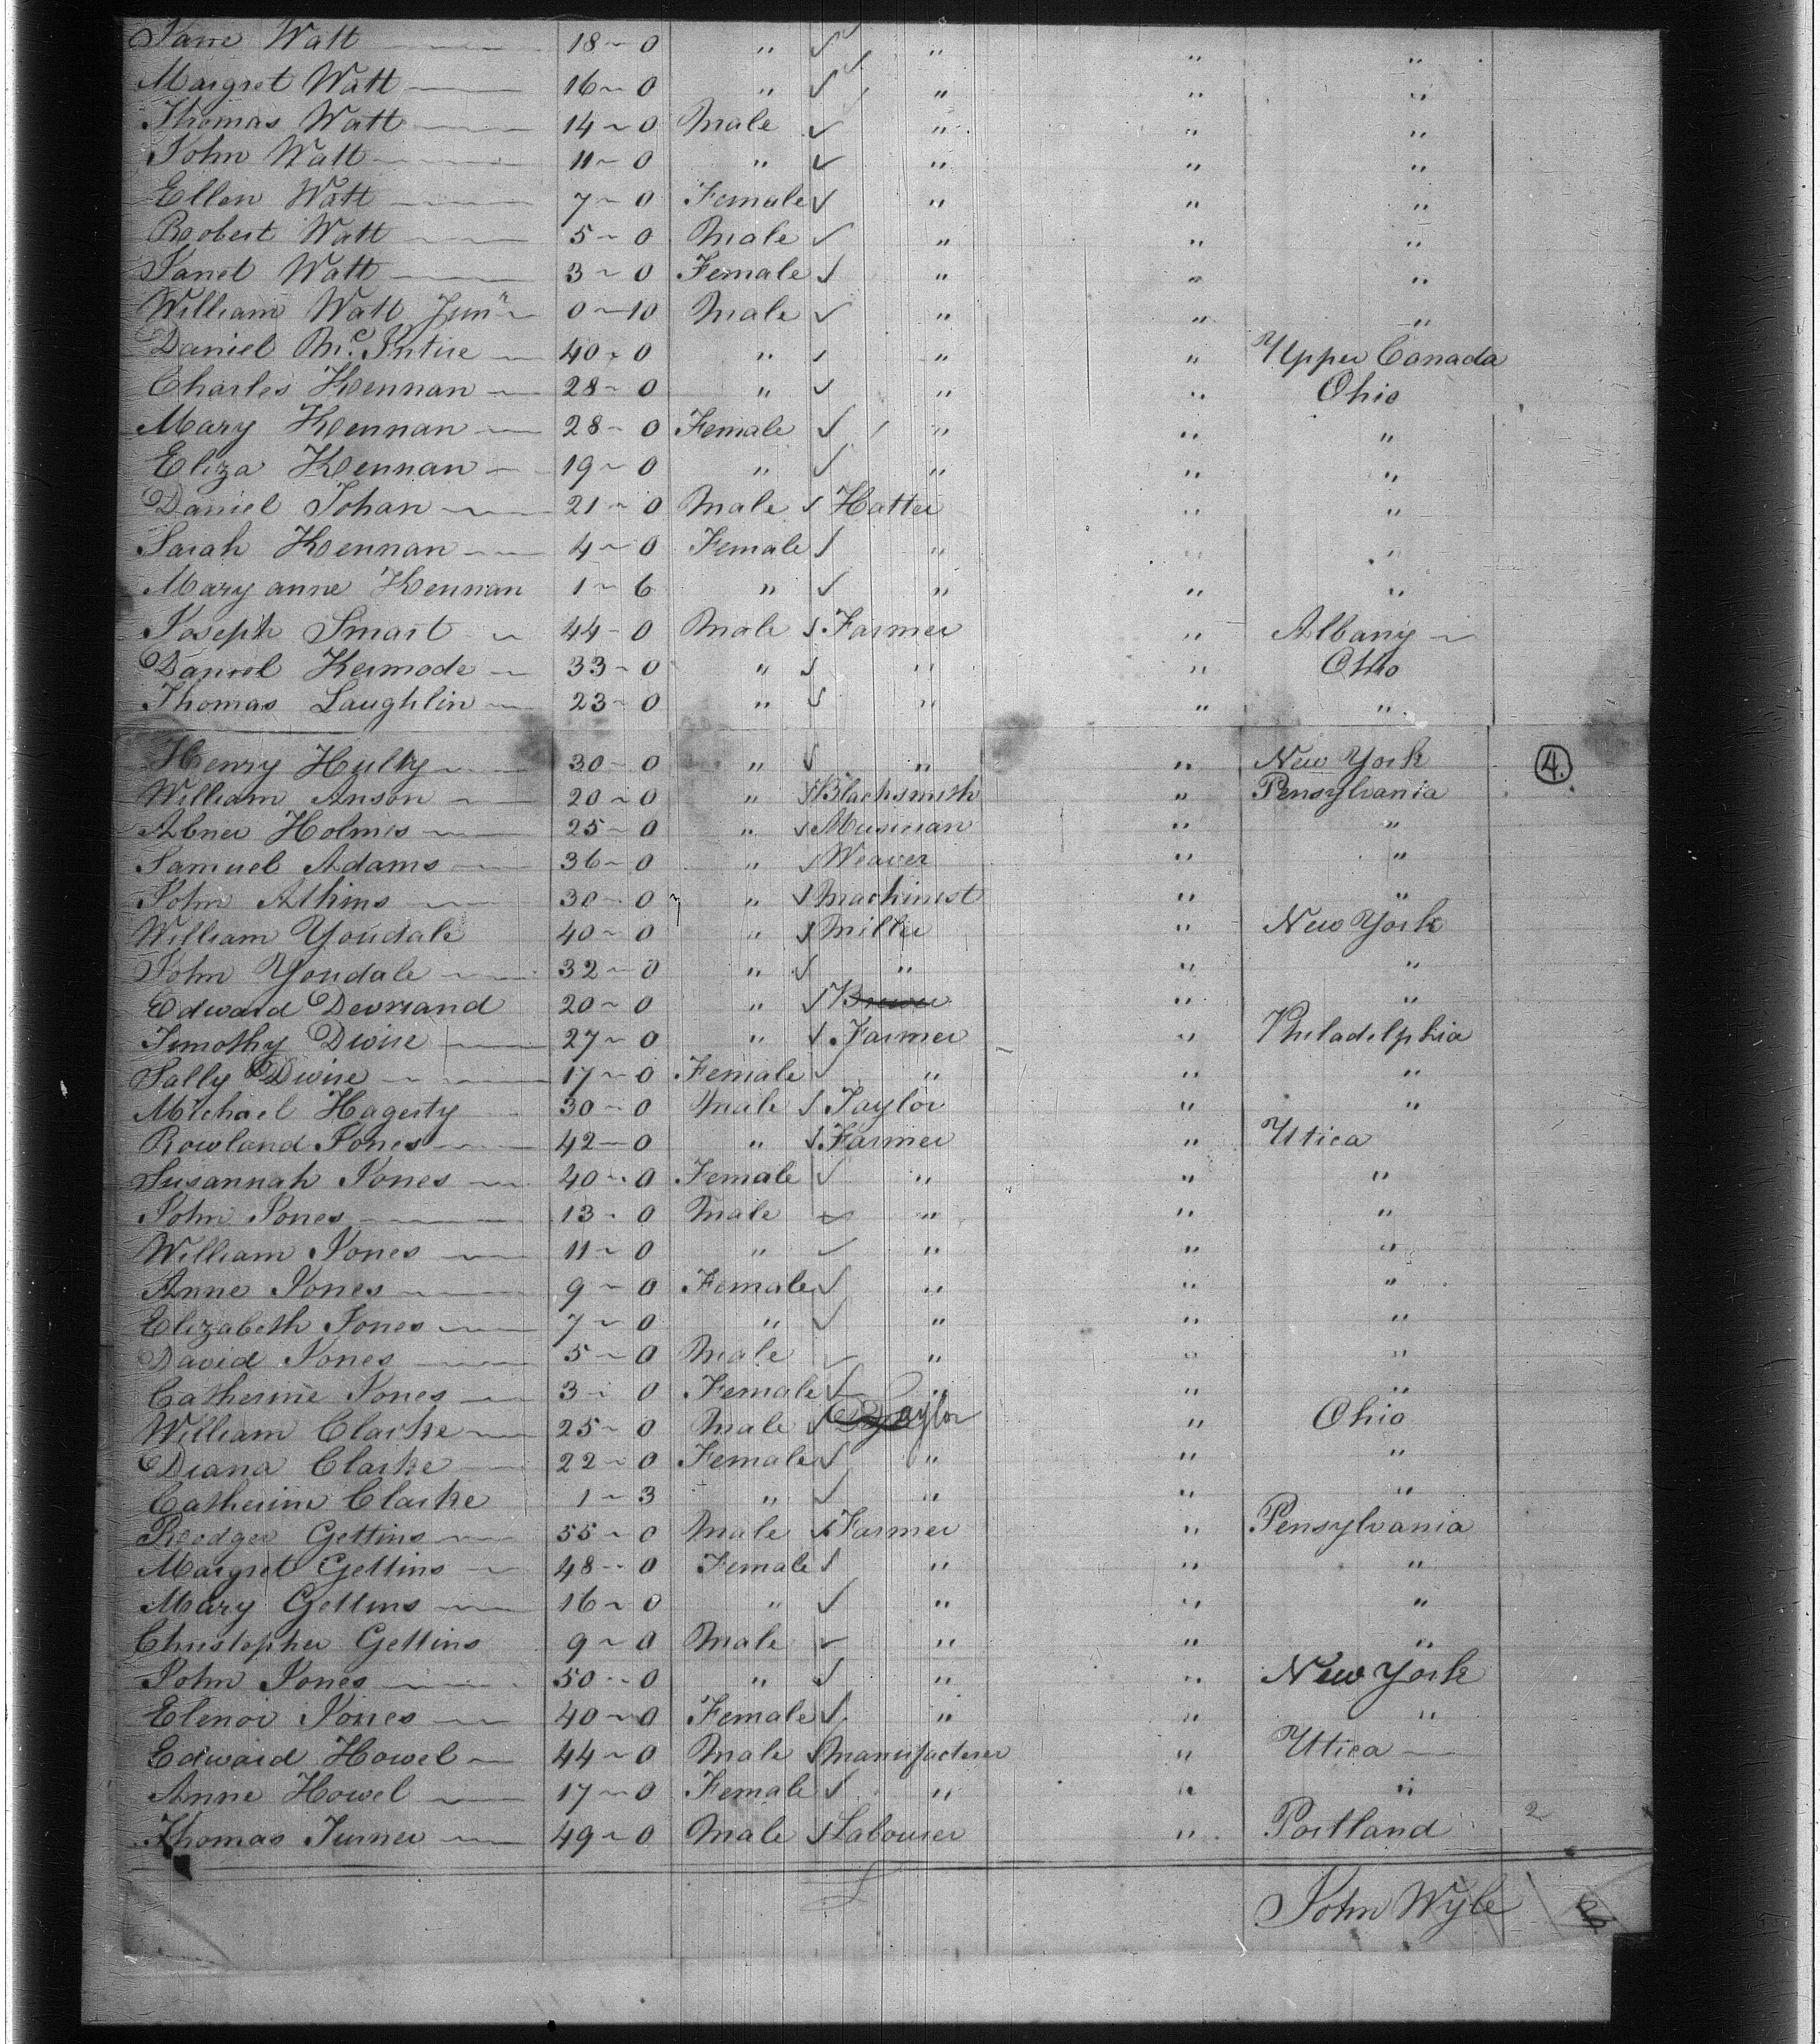 Jane Watt 18 ~ 0 " " " "
Margret Watt 16 ~ 0 " " " "
Thomas Watt 14 ~ 0 Male " " "
John Watt 11 ~ 0 " " " "
Ellen Watt 7 ~ 0 Female " " "
Robert Watt 5 ~ 0 Male " " "
Janet Watt 3 ~ 0 Female " " "
William Watt Junr 0 ~ 10 Male " " "
Daniel McIntire 40 ~ 0 " " " Upper Canada
Charles Kennan 28 ~ 0 " " " Ohio
Mary Kennan 28 ~ 0 Female " " "
Eliza Kennan 19 ~ 0 " " " "
Daniel Johan 21 ~ 0 Male Hatter " "
Sarah Kennan 4 ~ 0 Female " " "
Mary anne Kennan 1 ~ 6 " " " "
Joseph Smart 44 ~ 0 Male Farmer " Albany
Daniel Kermode 33 ~ 0 " " " Ohio
Thomas Laughlin 23 ~ 0 " " " "
Henry Hulty 30 ~ 0 " " " New York 4.
William Anson 20 ~ 0 " Blacksmith " Pensylvania
Abner Holmes 25 ~ 0 " Musician " "
Samuel Adams 36 ~ 0 " Weaver " "
John Atkins 30 ~ 0 " Machinist " "
William Youdale 40 ~ 0 " Miller " New York
John Youdale 32 ~ 0 " " " "
Edward 20 ~ 0 " Brewer " "
Timothy Dwire 27 ~ 0 " Farmer " Philadelphia
Sally Dwire 17 ~ 0 Female " " "
Michael Hagerty 30 ~ 0 Male Taylor " "
Rowland Jones 42 ~ 0 " Farmer " Utica
Susannah Jones 40 ~ 0 Female " " "
John Jones 13 ~ 0 Male " " "
William Jones 11 ~ 0 " " " "
Anne Jones 9 ~ 0 Female " " "
Elizabeth Jones 7 ~ 0 " " " "
David Jones 5 ~ 0 Male " " "
Catherine Jones 3 ~ 0 Female " " "
William Clarke 25 ~ 0 Male Taylor " Ohio
Diana Clarke 22 ~ 0 Female " " "
Catherine Clarke 1 ~ 3 " " " "
Rodger Gettins 55 ~ 0 Male Farmer " Pensylvania
Margret Gettins 48 ~ 0 Female " " "
Mary Gettins 16 ~ 0 " " " "
Christopher Gettins 9 ~ 0 Male " " "
John Jones 50 ~ 0 " " " New York
Elenor Jones 40 ~ 0 Female " " "
Edward Howel 44 ~ 0 Male Manufacterer " Utica
Anne Howel 17 ~ 0 Female " " "
Thomas Turner 49 ~ 0 Male Labourer " Portland 2
John Wyle